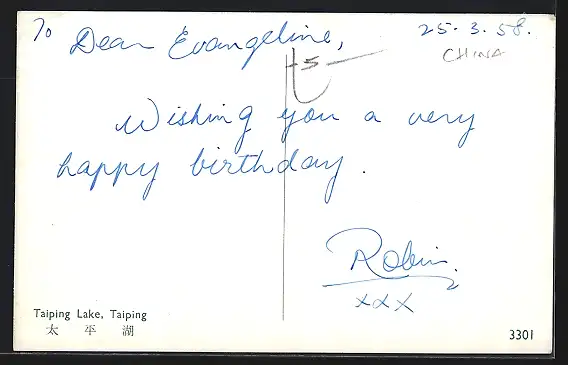 To Dear Evangeline,
25.3.58.
CHINA
5
Wishing you a very
happy birthday.
Robin.
xxx
Taiping Lake, Taiping
太 平 湖
3301